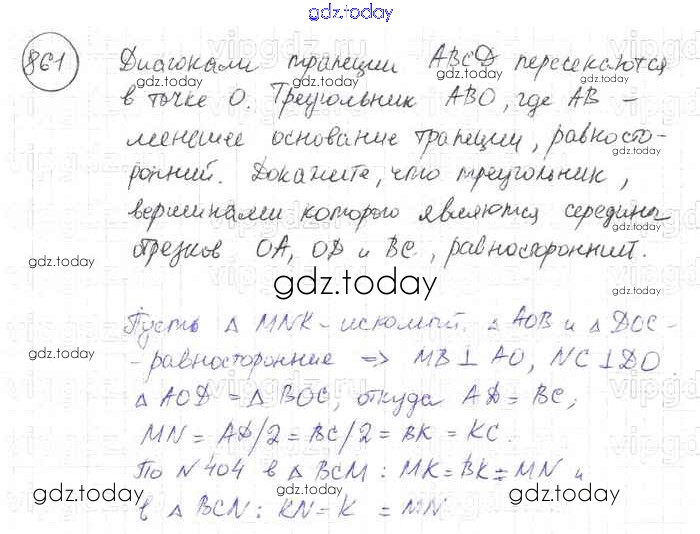 gdz.today
861 Диагонали трапеции ABCD пересекаются
в точке O. Треугольник ABO, где AB -
меньшее основание трапеции, равносто-
ронний. Докажите, что треугольник,
вершинами которого являются середины
отрезков OA, OD и BC, равносторонний.
gdz.today
Пусть △ MNK - искомый. △ AOB и △ DOC -
- равносторонние => MB ⊥ AO, NC ⊥ DO
△ AOD = △ BOC, откуда AD = BC;
MN = AD/2 = BC/2 = BK = KC.
По N 404 в △ BCM: MK = BK = MN и
в △ BCN: KN = K = MN
gdz.today